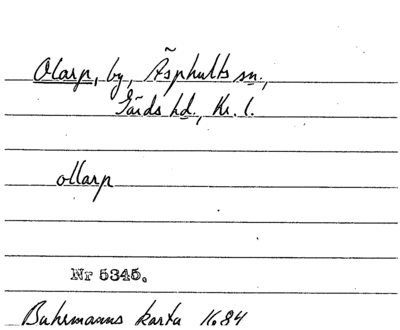 Olarp, by, Äsphults sn.,
Gärds hd., Kr. l.
ollarp
Nr 5345.
Buhrmanns karta 1684